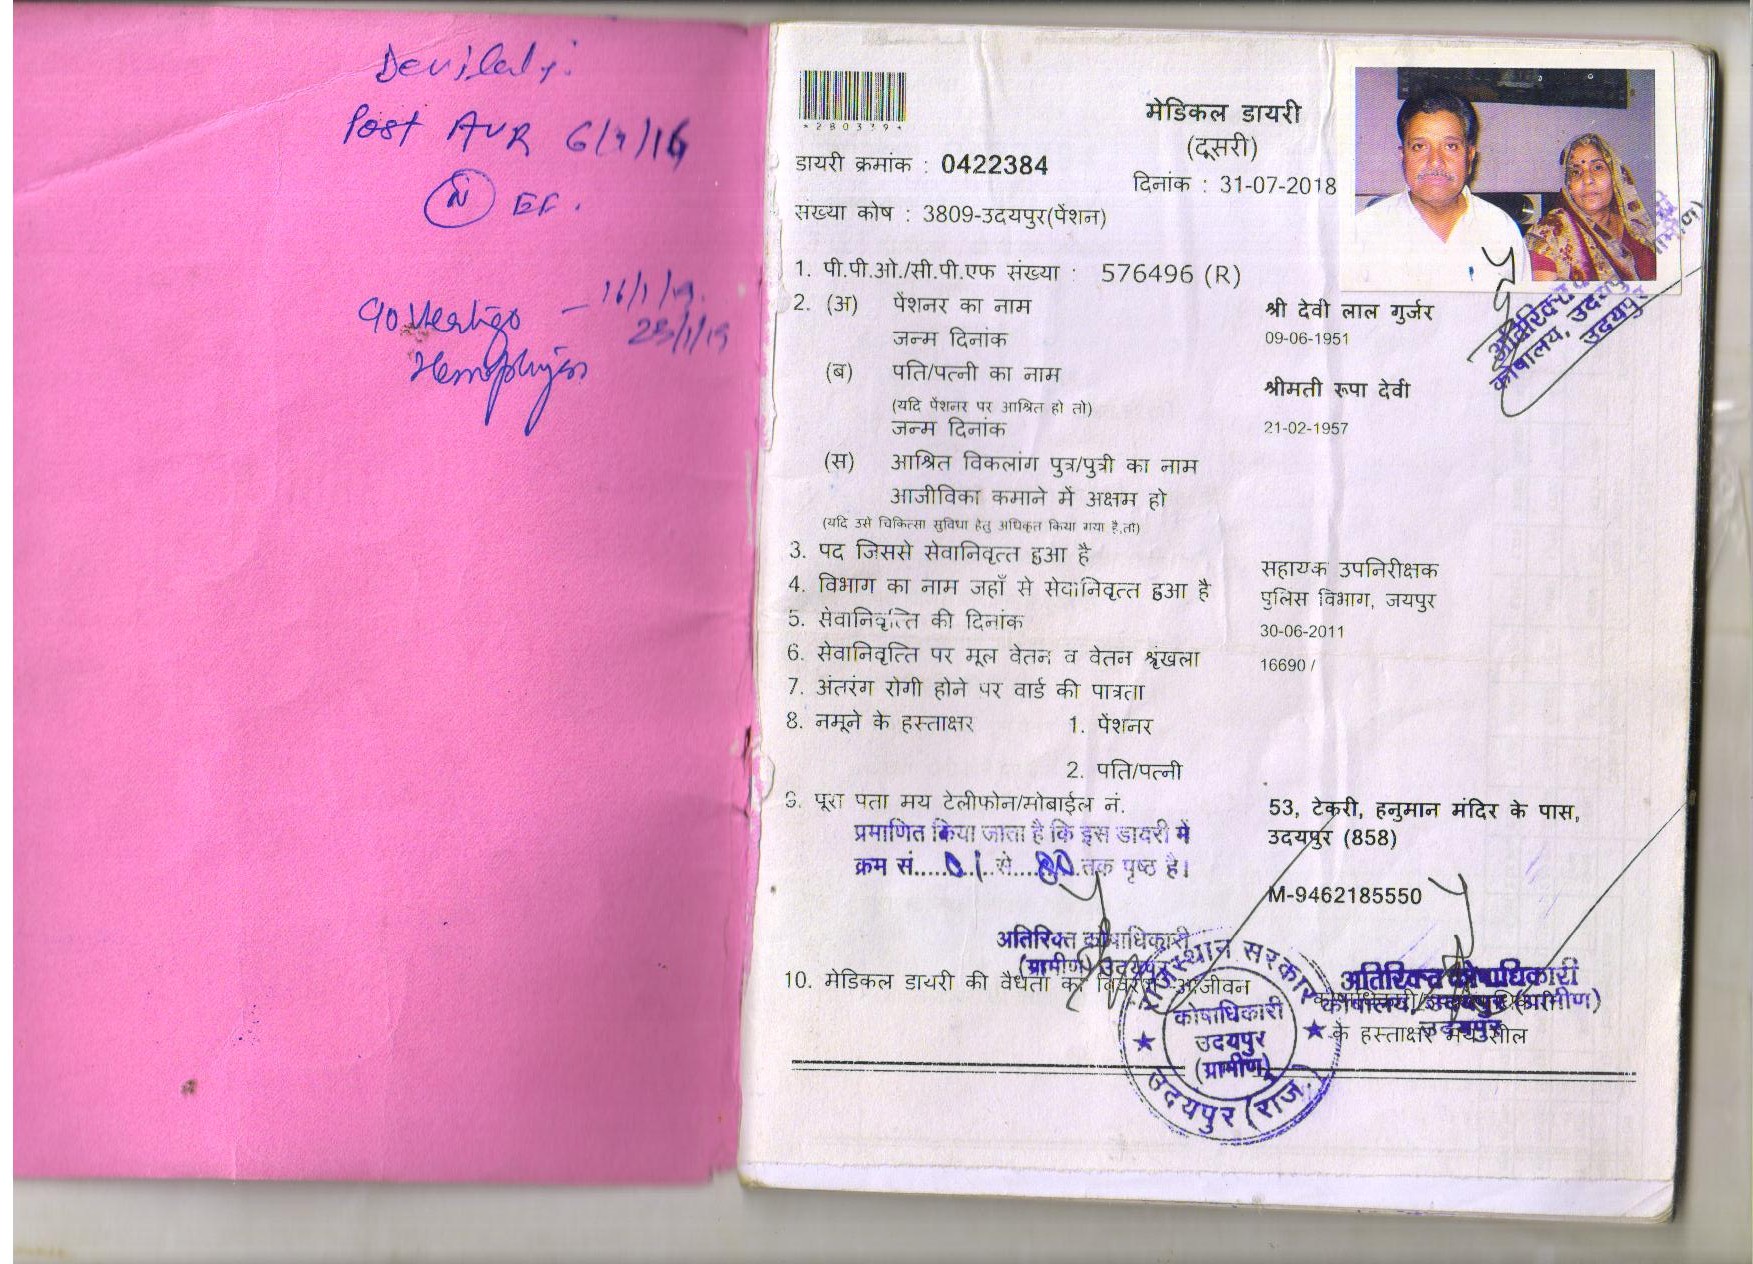 Devilalji
Post AVR 6/7/16
N EF.
c/o Vertigo - 16/1/19.
23/1/19
*280339*
मेडिकल डायरी
(दूसरी)
डायरी क्रमांक : 0422384
दिनांक : 31-07-2018
संख्या कोष : 3809-उदयपुर(पेंशन)
1. पी.पी.ओ./सी.पी.एफ संख्या : 576496 (R)
2. (अ) पेंशनर का नाम श्री देवी लाल गुर्जर
जन्म दिनांक 09-06-1951
(ब) पति/पत्नी का नाम श्रीमती रूपा देवी
(यदि पेंशनर पर आश्रित हो तो)
जन्म दिनांक 21-02-1957
(स) आश्रित विकलांग पुत्र/पुत्री का नाम
आजीविका कमाने में अक्षम हो
(यदि उसे चिकित्सा सुविधा हेतु अधिकृत किया गया है,तो)
3. पद जिससे सेवानिवृत्त हुआ है सहायक उपनिरीक्षक
4. विभाग का नाम जहाँ से सेवानिवृत्त हुआ है पुलिस विभाग, जयपुर
5. सेवानिवृत्ति की दिनांक 30-06-2011
6. सेवानिवृत्ति पर मूल वेतन व वेतन श्रृंखला 16690 /
7. अंतरंग रोगी होने पर वार्ड की पात्रता
8. नमूने के हस्ताक्षर 1. पेंशनर
2. पति/पत्नी
9. पूरा पता मय टेलीफोन/मोबाईल नं. 53, टेकरी, हनुमान मंदिर के पास,
उदयपुर (858)
प्रमाणित किया जाता है कि इस डायरी में
क्रम सं.....01..से....80.तक पृष्ठ है।
M-9462185550
अतिरिक्त कोषाधिकारी
(ग्रामीण) उदयपुर
10. मेडिकल डायरी की वैधता का विवरण आजीवन
अतिरिक्त कोषाधिकारी
कोषालय, उदयपुर (ग्रामीण)
उदयपुर
के हस्ताक्षर मय सील
राजस्थान सरकार
कोषाधिकारी
उदयपुर
(ग्रामीण)
उदयपुर (राज.)
अतिरिक्त
कोषालय, उदयपु
उदयपुर